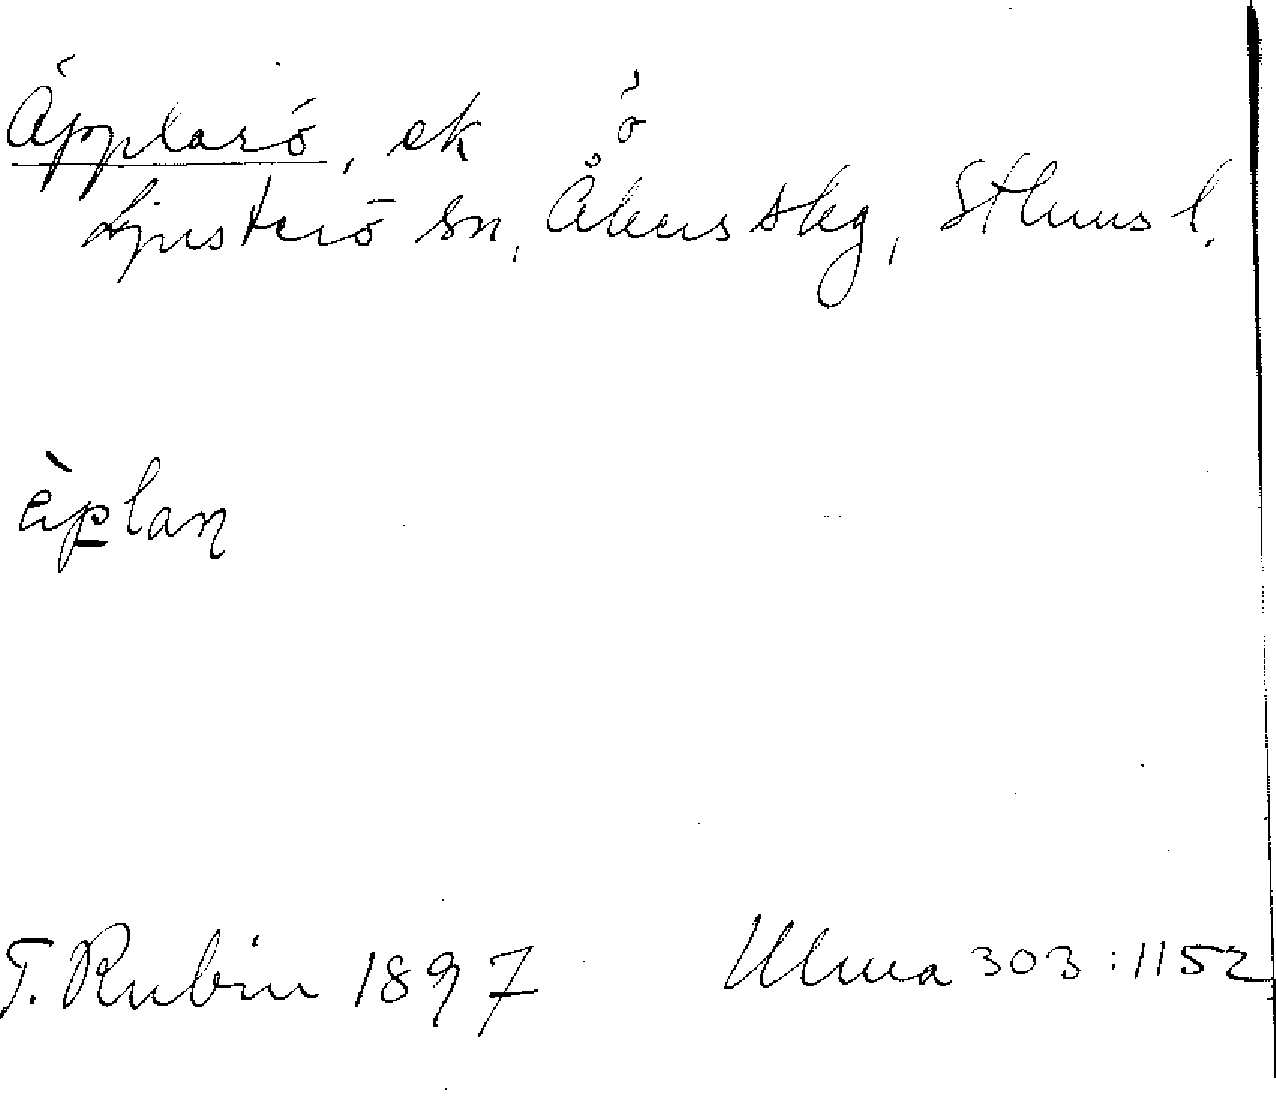 Äpplarö, ek ö
Ljusterö sn, Åkers skg, Sthms l.
äplan
T. Rubin 1897 Ulma 303:1152